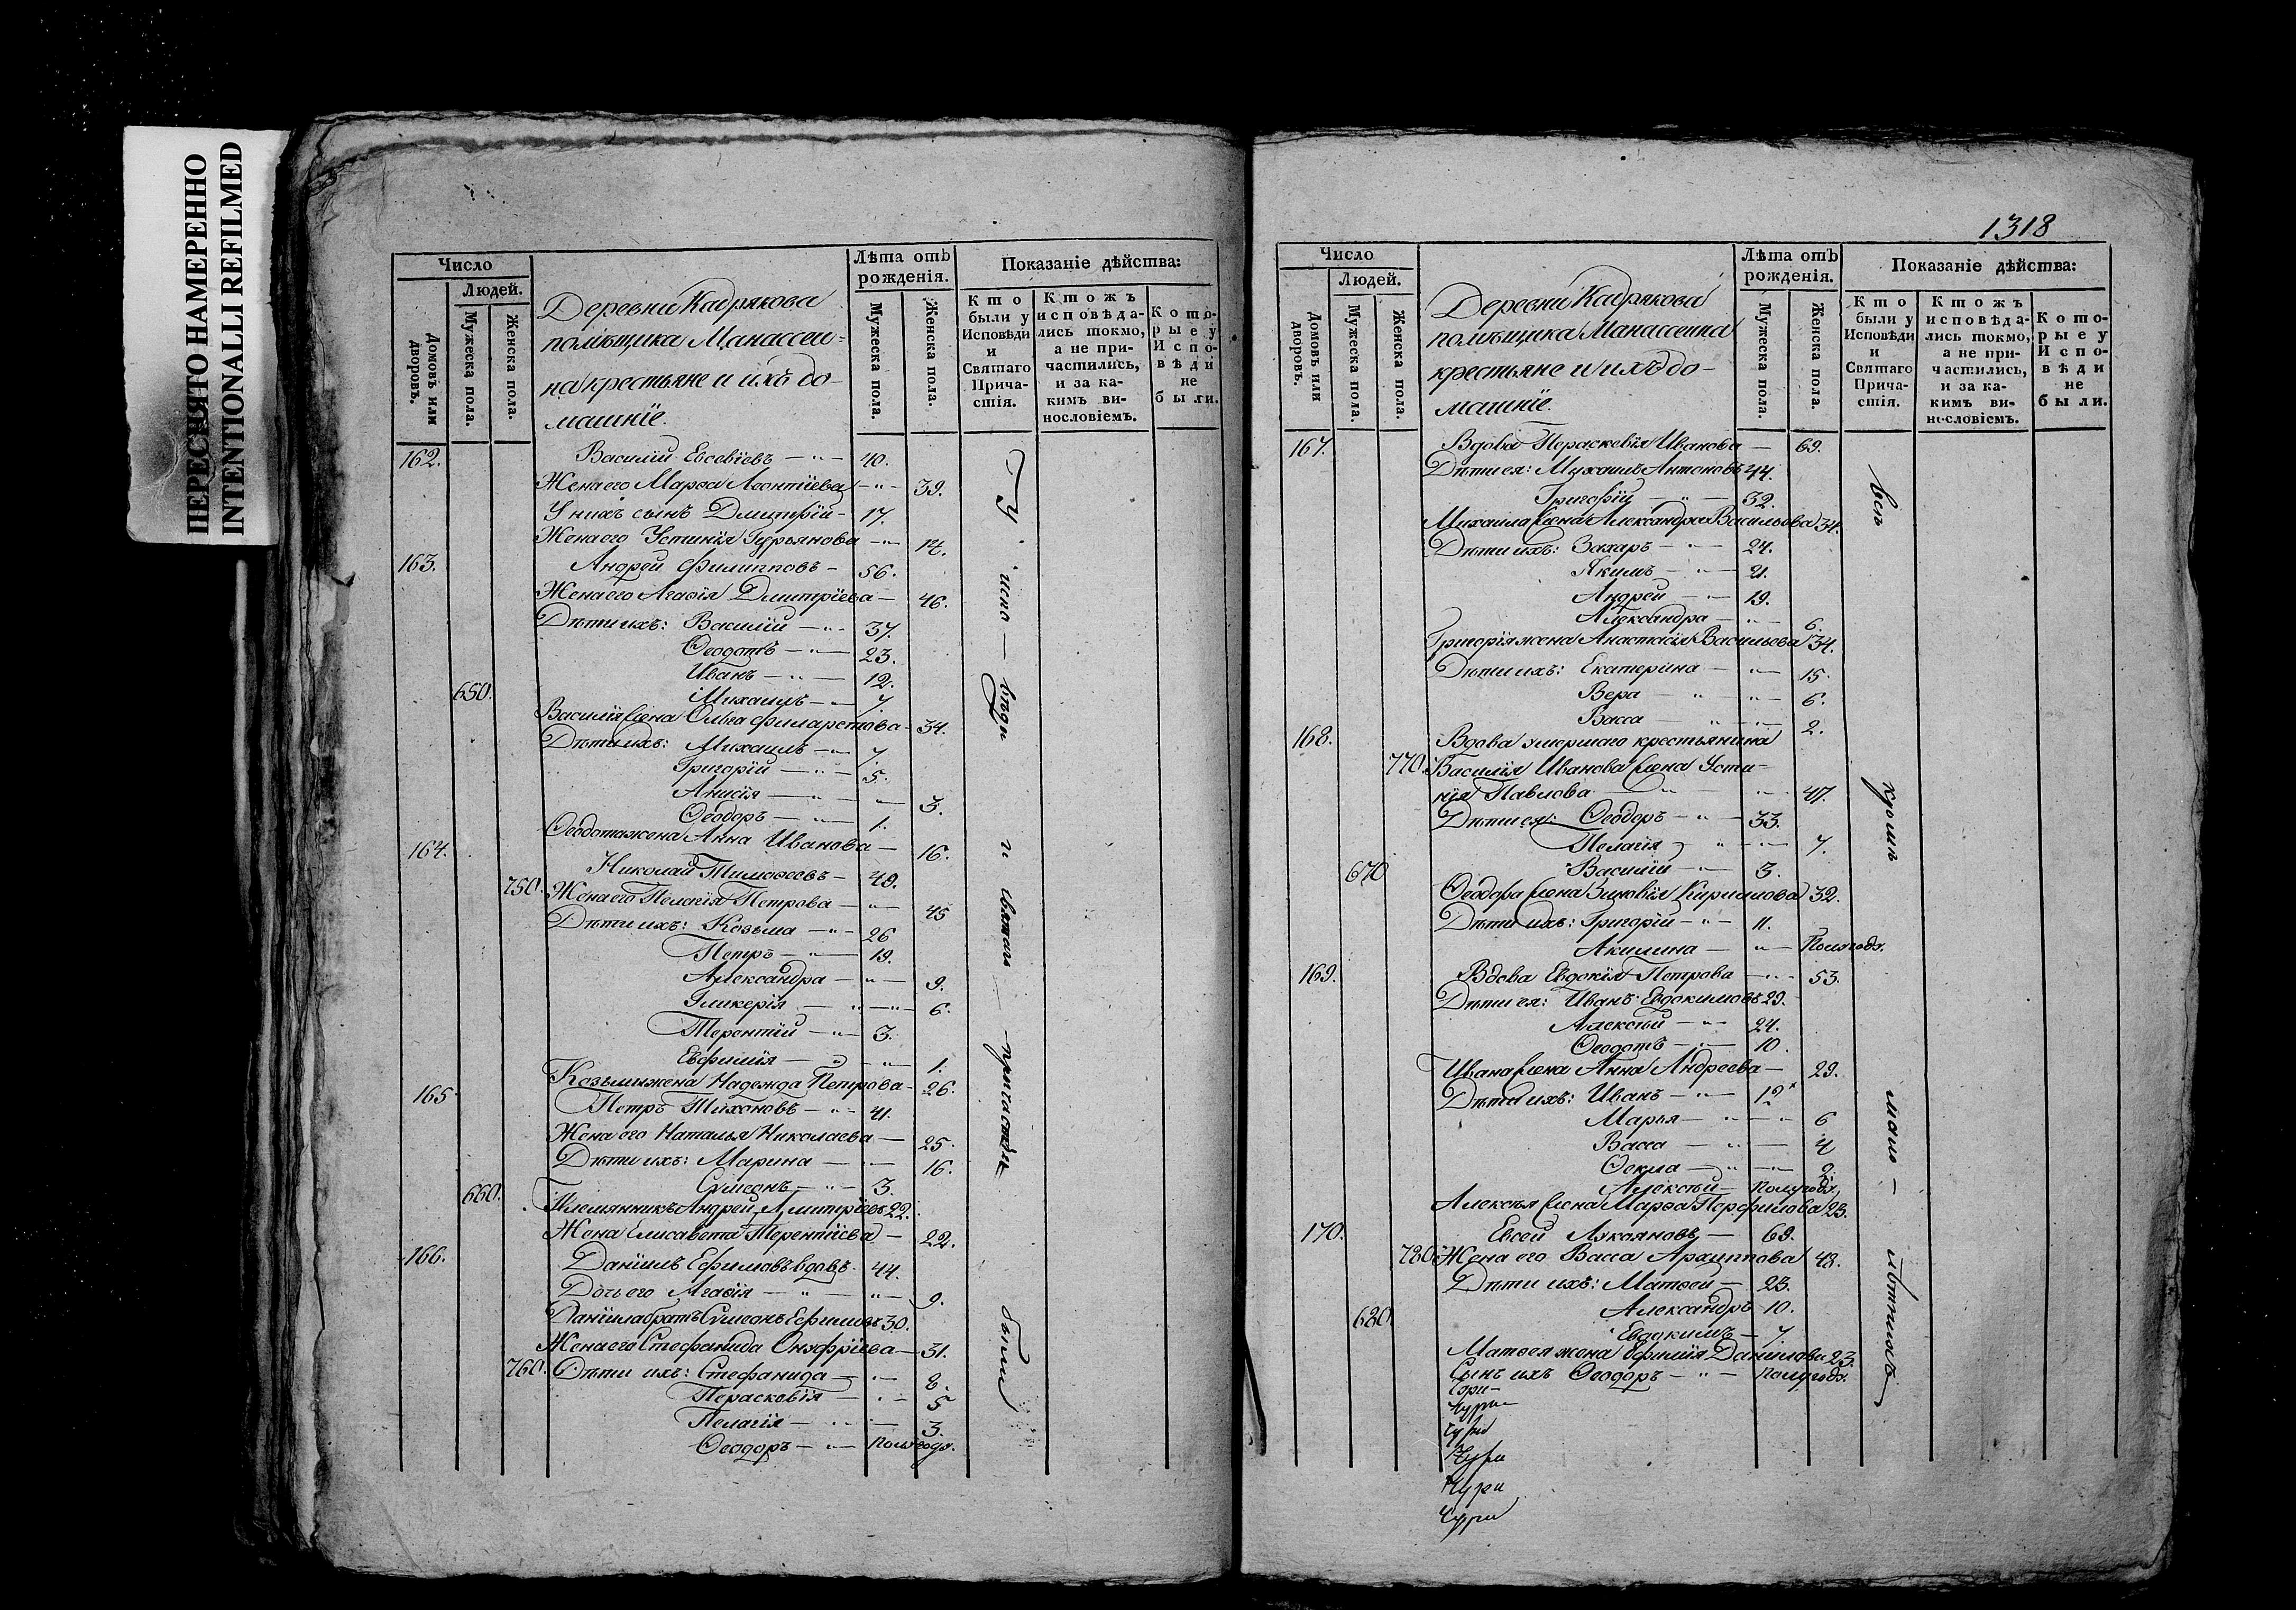 ПЕРЕСНЯТО НАМЕРЕННО
INTENTIONALLI REFILMED
Число
Людей.
Домовъ или дворовъ.
Мужеска пола.
Женска пола.
Деревни Кадрякова
помѣщика Манассеи-
на крестьяне и ихъ до-
машнїе.
Лѣта отъ рожденія.
Мужеска пола.
Женска пола.
Показаніе дѣйства:
Кто были у Исповѣди и Святаго Прича-стія.
Ктожъ исповѣда-лись токмо, а не при-частились, и за ка-кимъ ви-нословіемъ.
Кото-рые у Испо-вѣди не были.
162. Василій Евсевіевъ 40.
Жена его Марѳа Леонтїева 39.
У нихъ сынъ Димитрїй 17.
Жена его Устинїя Гурьянова 14.
163. Андрей Филипповъ 56.
Жена его Агаѳїя Димитрїева 46.
Дѣти ихъ: Василїй 37.
Ѳеодотъ 23.
Иванъ 12.
650. Михаилъ 7.
Василїя жена Ольга Филаретова 34.
Дѣти ихъ: Михаилъ 7.
Григорїй 5.
Анисїя 3.
Ѳеодоръ 1.
Ѳеодота жена Анна Иванова 16.
164. Николай Тимоѳеевъ 48.
750. Жена его Пелагїя Петрова 45
Дѣти ихъ: Козьма 26
Петръ 19.
Александра 9.
Гликерїя 6.
Терентїй 3.
Евфимїя 1.
Козьмы жена Надежда Петрова 26.
165 Петръ Тихоновъ 41.
Жена его Наталья Николаева 25.
Дѣти ихъ: Марина 16.
660. Сумеонъ 3.
Племянникъ Андрей Димитрїевъ 22.
Жена Елисавета Терентїева 22.
166. Данїилъ Ефимовъ вдовъ 44.
Дочь его Агаѳїя 9.
Данїила братъ Сумеонъ Ефимовъ 30.
Жена его Стефанида Онуфрїева 31.
760. Дѣти ихъ: Стефанида 8.
Перасковїя 5
Пелагїя 3.
Ѳеодоръ полугодъ.
У испо-вѣди и святаго причастїя были
1318
Число
Людей.
Домовъ или дворовъ.
Мужеска пола.
Женска пола.
Деревни Кадрякова
помѣщика Манассеина
крестьяне и ихъ до-
машнїе.
Лѣта отъ рожденія.
Мужеска пола.
Женска пола.
Показаніе дѣйства:
Кто были у Исповѣди и Святаго Прича-стія.
Ктожъ исповѣда-лись токмо, а не при-частились, и за ка-кимъ ви-нословіемъ.
Кото-рые у Испо-вѣди не были.
167. Вдова Пераскевїя Иванова 69.
Дѣти ея: Михаилъ Антоновъ 44.
Григорїй 32.
Михаила жена Александра Васильева 34.
Дѣти ихъ: Захаръ 24.
Якимъ 21.
Андрей 19.
Александра 6.
Григорїя жена Анастасїя Васильева 34.
Дѣти ихъ: Екатерина 15.
Вера 6.
Васса 2.
168. Вдова умершаго крестьянина
770. Василїя Иванова жена Усти-
нїя Павлова 47.
Дѣти ея: Ѳеодоръ 33.
Пелагїя 7.
670 Василїй 3.
Ѳеодора жена Зиновїя Кирилова 32.
Дѣти ихъ: Григорїй 11.
Акилина Полугодъ.
169. Вдова Евдокїя Петрова 53.
Дѣти ея: Иванъ Евдокимовъ 29.
Алексѣй 24.
Ѳеодотъ 10.
Ивана жена Анна Андреева 29.
Дѣти ихъ: Иванъ 12
Марья 6
Васса 4
Ѳекла 2.
Алексѣй полугодъ,
Алексѣя жена Марѳа Перфилова 23.
170. Евсей Лукояновъ 69.
780. Жена его Васса Архиппова 48.
Дѣти ихъ: Матвей 23.
Александръ 10.
680. Евдокимъ 7.
Матвея жена Ефимїя Данилова 23.
Сынъ ихъ Ѳеодоръ полугодъ.
всѣ кромѣ мало-лѣтнихъ